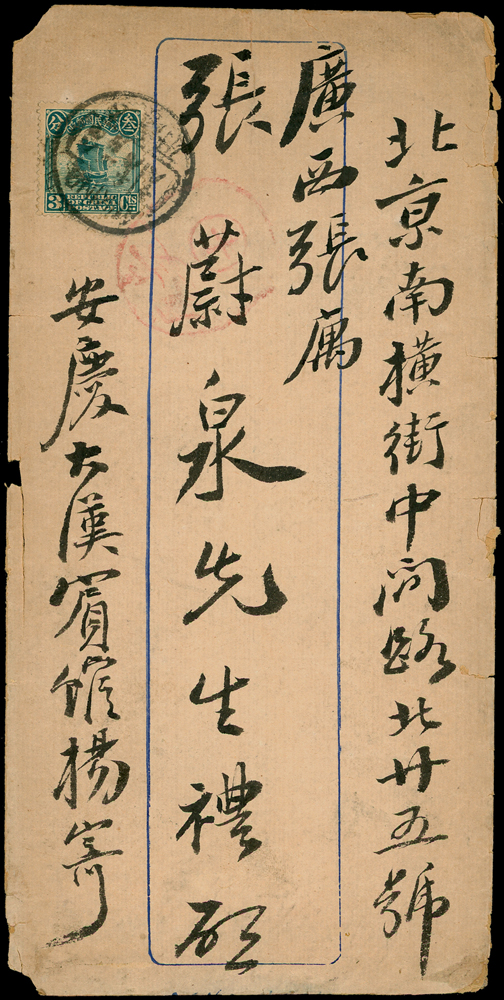 北京南橫街中間路北廿五號
廣西張寓
張蔚泉先生禮啟
安慶大漢賓館楊寄
叁 分
3 Cts
REPUBLIC
OF CHINA
POSTAGE